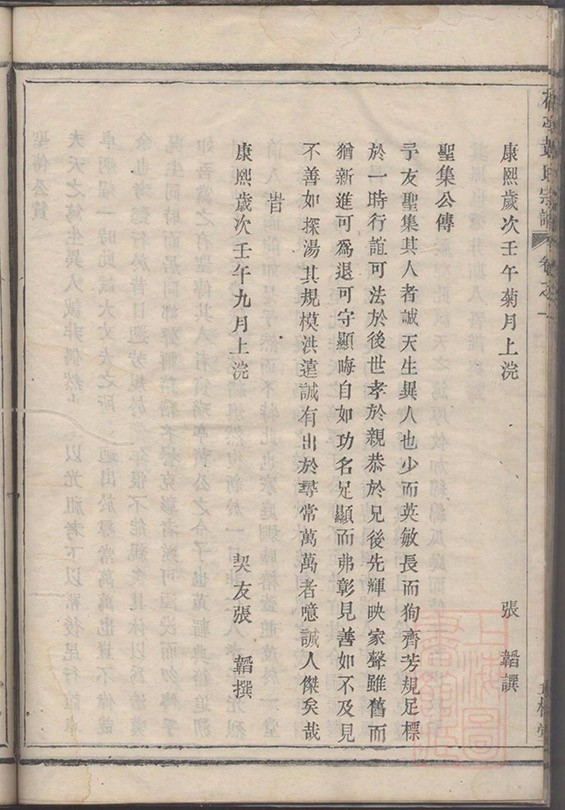 康熙歲次壬午菊月上浣
張 韜譔
聖集公傳
予友聖集其人者誠天生異人也少而英敏長而狥齊芳規足標
於一時行誼可法於後世孝於親恭於兄後先輝映家聲雖舊而
猶新進可為退可守顯晦自如功名足顯而弗彰見善如不及見
不善如探湯其規模洪遠誠有出於尋常萬萬者噫誠人傑矣哉
旹
康熙歲次壬午九月上浣
契友張 韜撰
氏宗譜
卷之一
上海圖書館藏